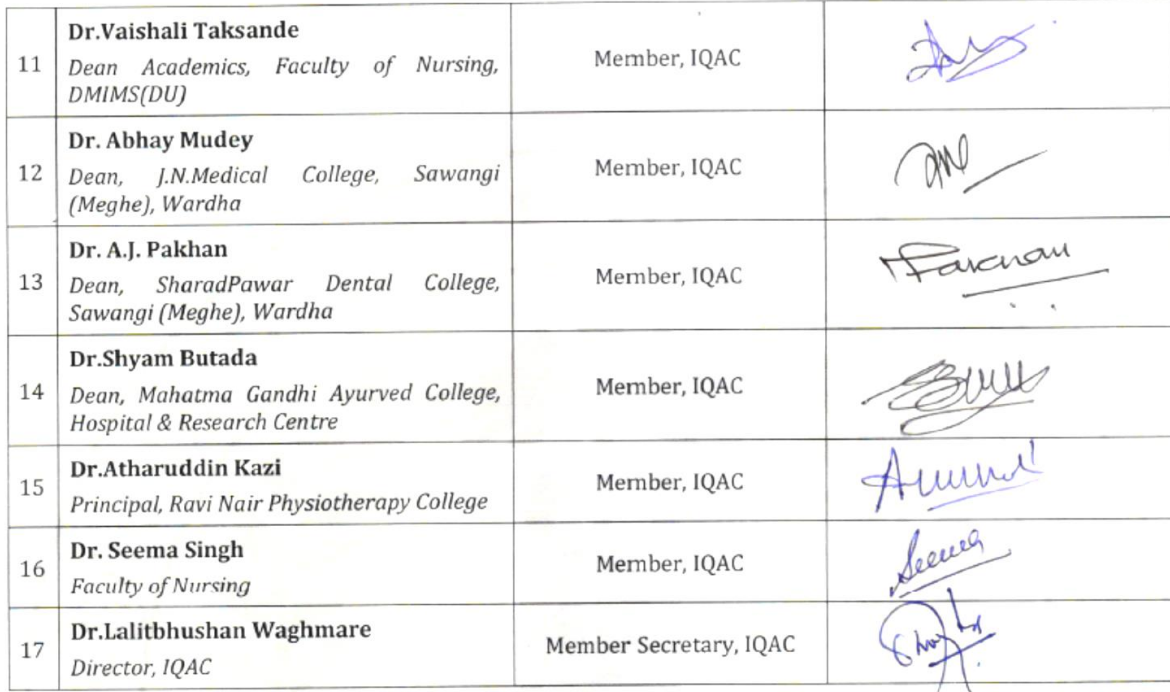 11
Dr.Vaishali Taksande
Dean Academics, Faculty of Nursing,
DMIMS(DU)
Member, IQAC
12
Dr. Abhay Mudey
Dean, J.N.Medical College, Sawangi
(Meghe), Wardha
Member, IQAC
13
Dr. A.J. Pakhan
Dean, SharadPawar Dental College,
Sawangi (Meghe), Wardha
Member, IQAC
14
Dr.Shyam Butada
Dean, Mahatma Gandhi Ayurved College,
Hospital & Research Centre
Member, IQAC
15
Dr.Atharuddin Kazi
Principal, Ravi Nair Physiotherapy College
Member, IQAC
16
Dr. Seema Singh
Faculty of Nursing
Member, IQAC
Seema
17
Dr.Lalitbhushan Waghmare
Director, IQAC
Member Secretary, IQAC